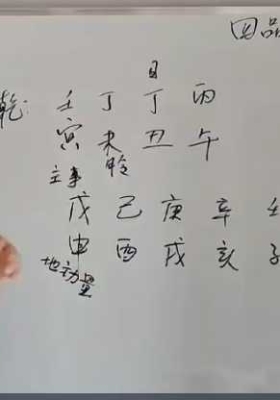 因品
日
乾: 壬 丁 丁 丙
寅 未 丑 午
主事
戊 己 庚 辛 壬
申 酉 戌 亥 子
地动量